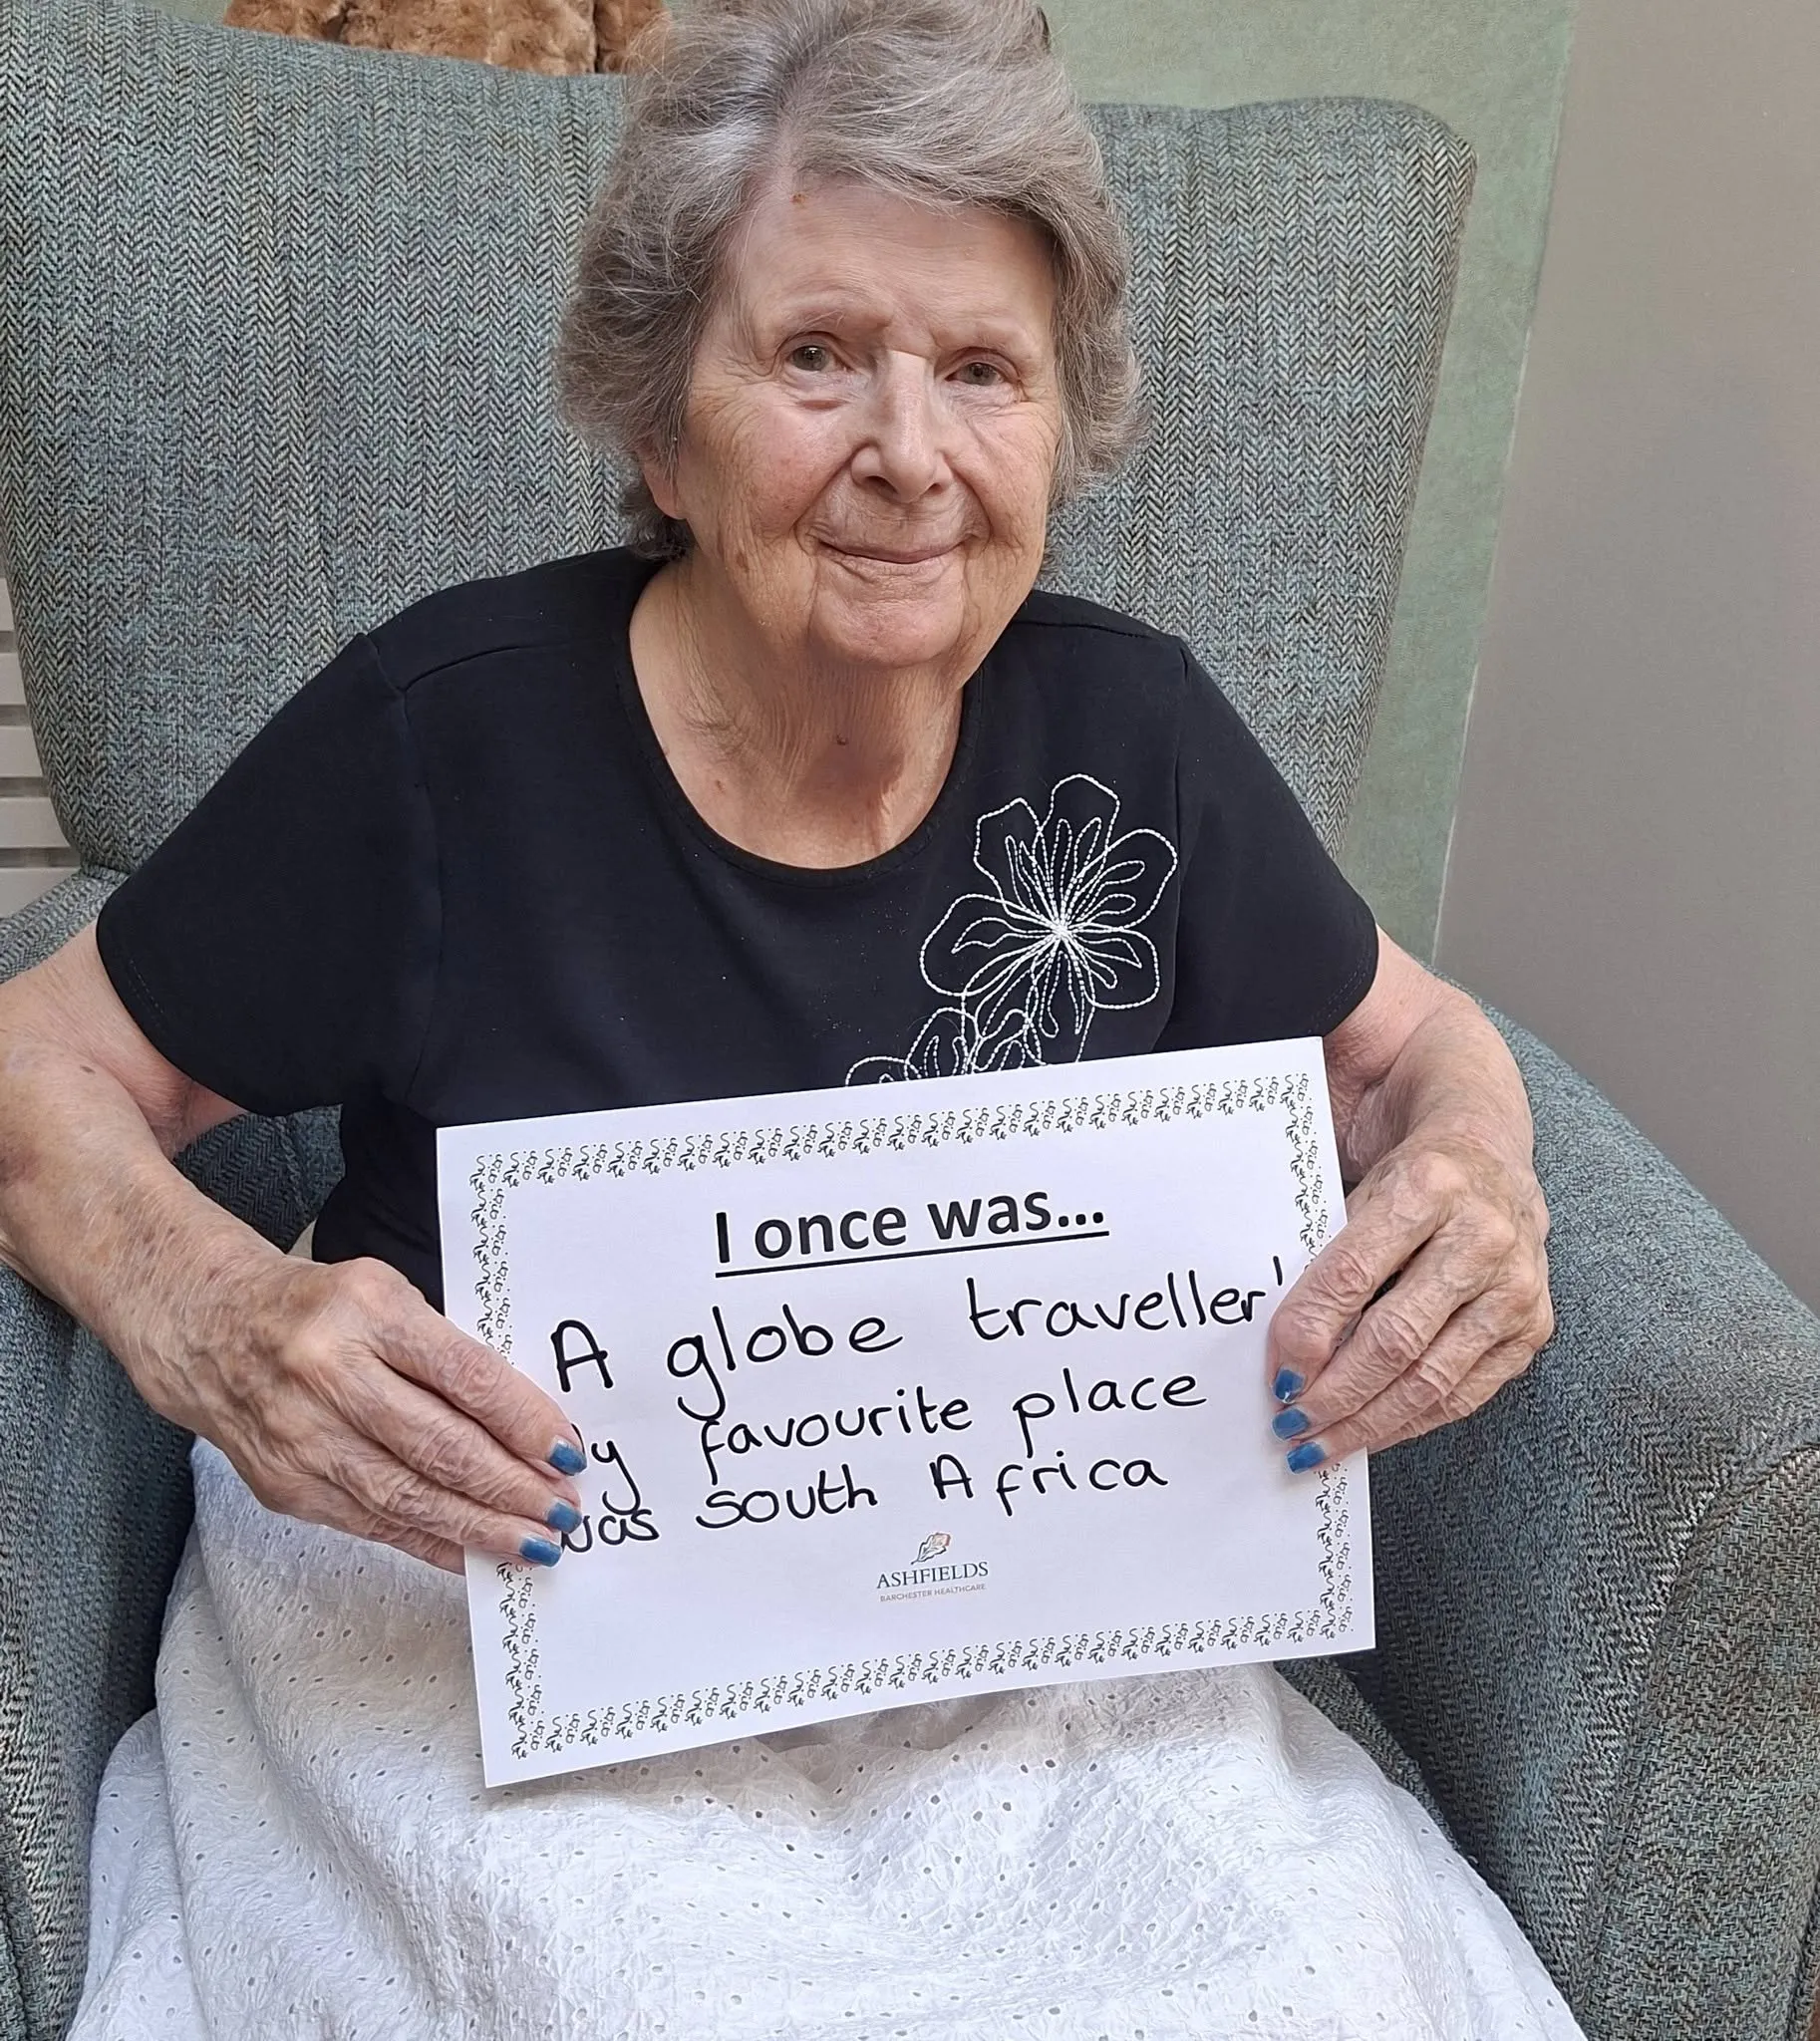 I once was...
A globe traveller'
y favourite place
was south Africa
ASHFIELDS
BARCHESTER HEALTHCARE